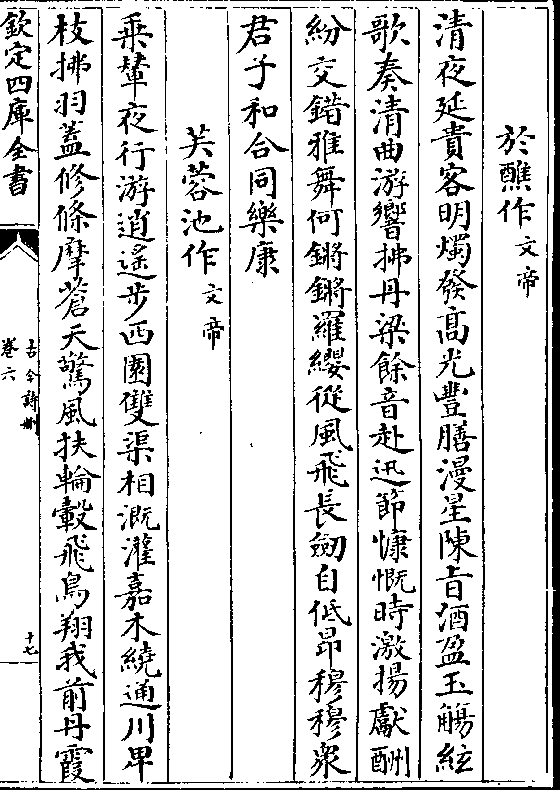 於醮作文帝
清夜延貴客明燭發高光豐膳漫星陳旨酒盈玉觴絃
歌奏清曲游響拂丹梁餘音赴迅節慷慨時激揚獻酬
紛交錯雅舞何鏘鏘羅纓從風飛長劒自低昂穆穆衆
君子和合同樂康
芙蓉池作文帝
乗輦夜行游逍遙步西園雙渠相溉灌嘉木繞通川卑
枝拂羽蓋修條摩蒼天驚風扶輪轂飛鳥翔我前丹霞
欽定四庫全書
古今詩刪
卷六
十七